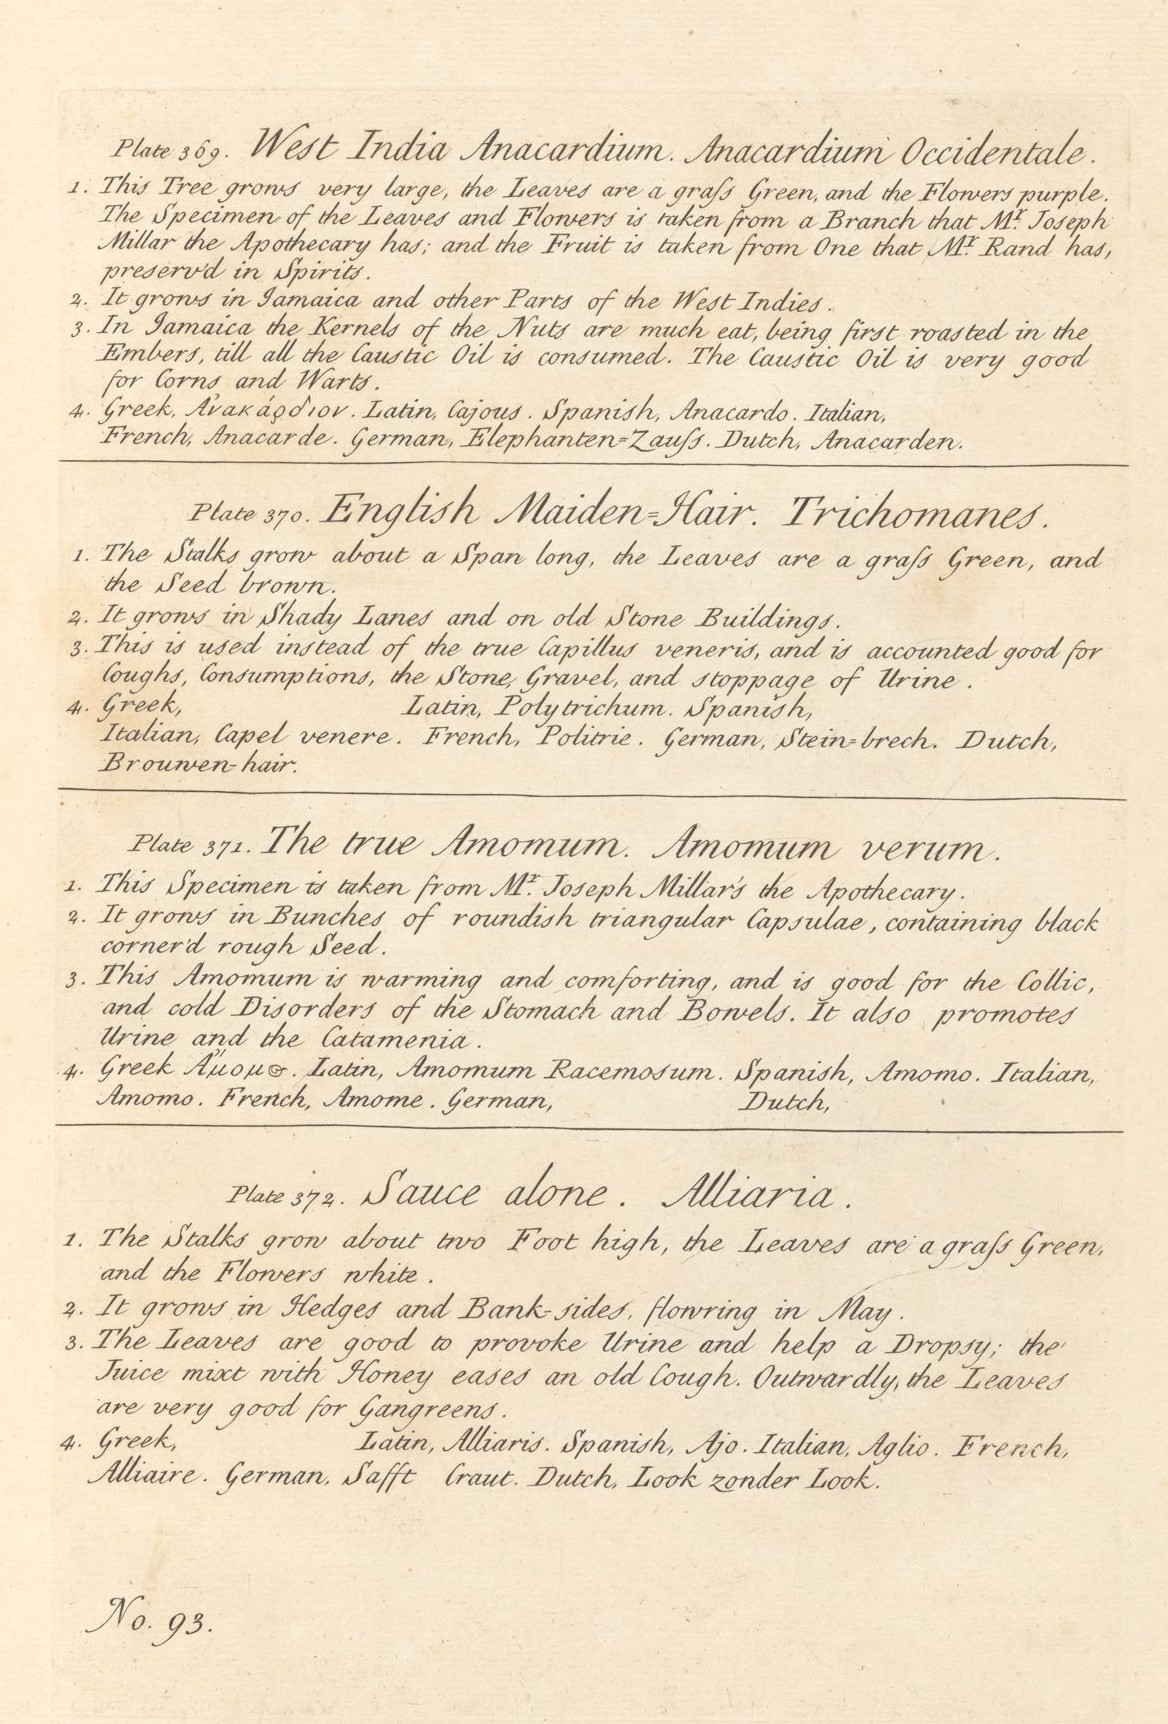 Plate 369. West India Anacardium. Anacardium Occidentale.
1. This Tree grows very large, the Leaves are a graſs Green, and the Flowers purple.
The Specimen of the Leaves and Flowers is taken from a Branch that Mr. Joseph
Millar the Apothecary has; and the Fruit is taken from One that Mr. Rand has,
preserv'd in Spirits.
2. It grows in Jamaica and other Parts of the West Indies.
3. In Jamaica the Kernels of the Nuts are much eat, being first roasted in the
Embers, till all the Caustic Oil is consumed. The Caustic Oil is very good
for Corns and Warts.
4. Greek, Ἀνακάρδιον. Latin, Cajous. Spanish, Anacardo. Italian,
French, Anacarde. German, Elephanten=Zauſs. Dutch, Anacarden.
Plate 370. English Maiden=Hair. Trichomanes.
1. The Stalks grow about a Span long, the Leaves are a graſs Green, and
the Seed brown.
2. It grows in Shady Lanes and on old Stone Buildings.
3. This is used instead of the true Capillus veneris, and is accounted good for
Coughs, Consumptions, the Stone, Gravel, and stoppage of Urine.
4. Greek, Latin, Polytrichum. Spanish,
Italian, Capel venere. French, Politrie. German, Stein=brech. Dutch,
Brouwen-hair.
Plate 371. The true Amomum. Amomum verum.
1. This Specimen is taken from Mr. Joseph Millar's the Apothecary.
2. It grows in Bunches of roundish triangular Capsulae, containing black
corner'd rough Seed.
3. This Amomum is warming and comforting, and is good for the Collic,
and cold Disorders of the Stomach and Bowels. It also promotes
Urine and the Catamenia.
4. Greek Ἄμομος. Latin, Amomum Racemosum. Spanish, Amomo. Italian,
Amomo. French, Amome. German, Dutch,
Plate 372. Sauce alone. Alliaria.
1. The Stalks grow about two Foot high, the Leaves are a graſs Green,
and the Flowers white.
2. It grows in Hedges and Bank-sides, flowring in May.
3. The Leaves are good to provoke Urine and help a Dropsy; the
Juice mixt with Honey eases an old Cough. Outwardly, the Leaves
are very good for Gangreens.
4. Greek, Latin, Alliaris. Spanish, Ajo. Italian, Aglio. French,
Alliaire. German, Safft Craut. Dutch, Look zonder Look.
No. 93.